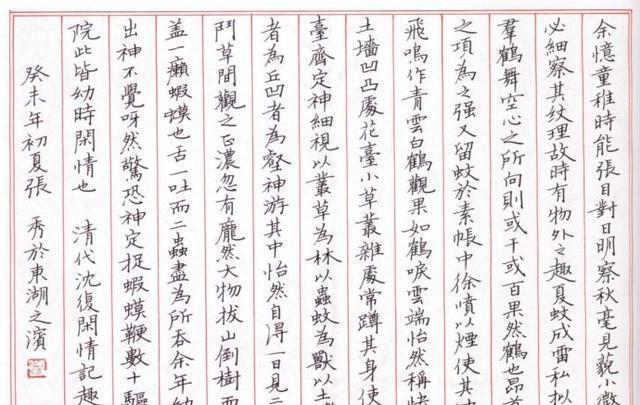 余憶童稚時能張目對日明察秋毫見藐小微
必細察其紋理故時有物外之趣夏蚊成雷私拟
羣鶴舞空心之所向則或千或百果然鶴也昂首
之項為之强又留蚊於素帳中徐噴以煙使其沖
飛鳴作青雲白鶴觀果如鶴唳雲端怡然稱快
土墻凹凸處花臺小草叢雜處常蹲其身使
臺齊定神細視以叢草為林以蟲蚊為獸以土
者為丘凹者為壑神游其中怡然自得一日見二
鬥草間觀之正濃忽有龐然大物拔山倒樹而
盖一癩蝦蟆也舌一吐而二蟲盡為所吞余年幼
出神不覺呀然驚恐神定捉蝦蟆鞭數十驅
院此皆幼時閑情也 清代沈復閑情記趣
癸未年初夏張 秀於東湖之濱